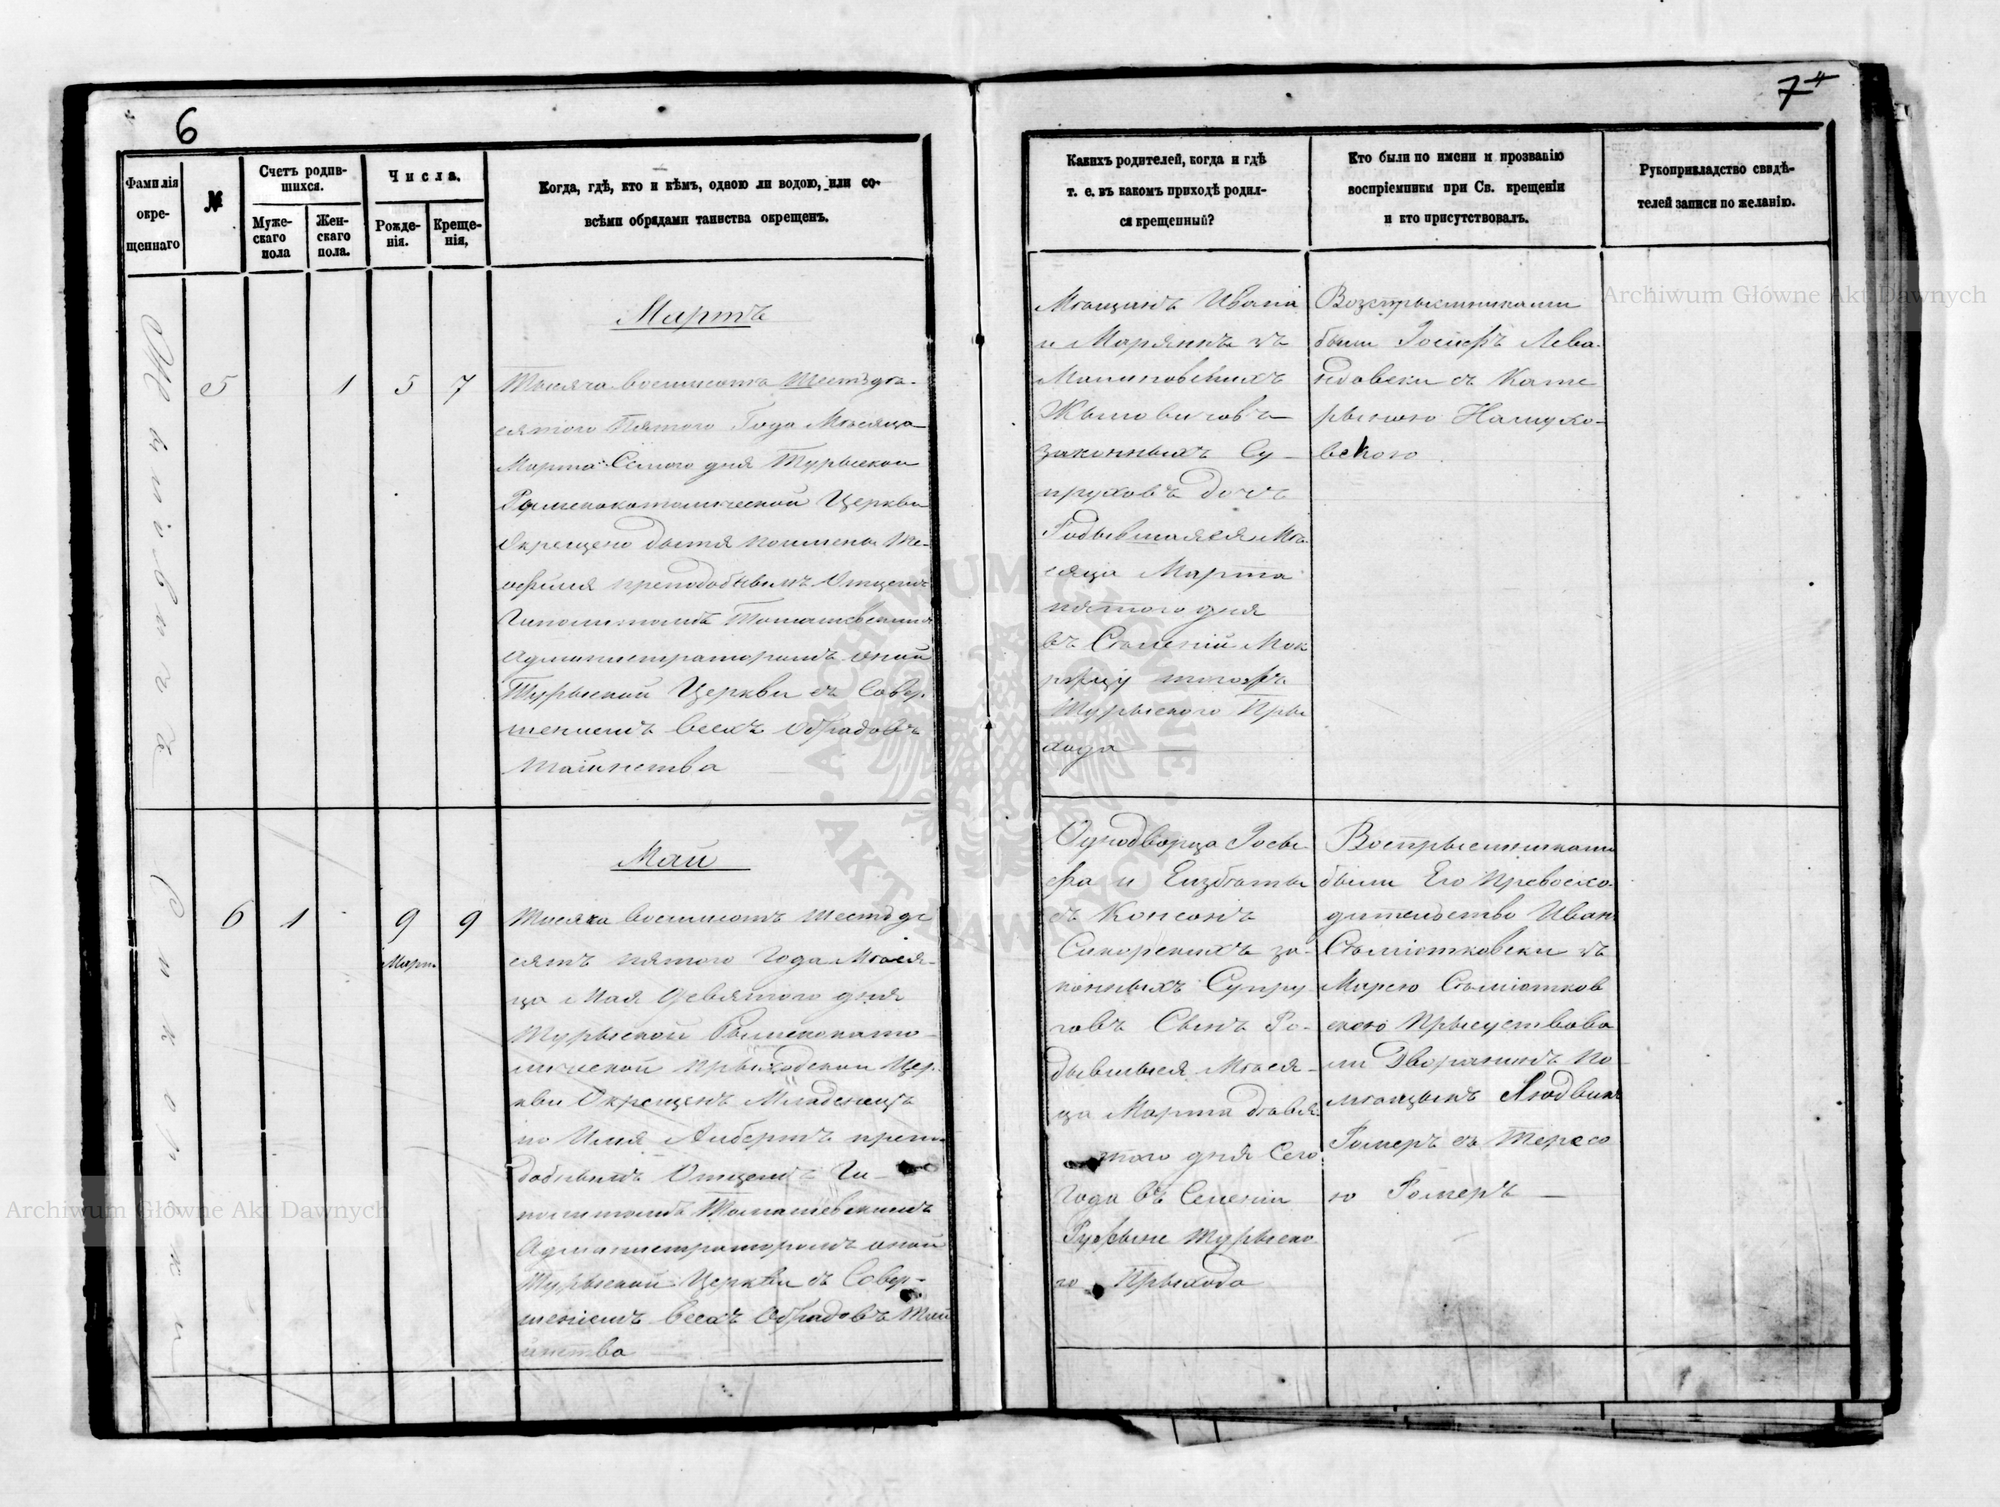 6
Фамилія
окре-
щеннаго
№
Счетъ родив-
шихся.
Муже-
скаго
пола
Жен-
скаго
пола.
Числа.
Рожде-
нія.
Креще-
нія,
Когда, гдѣ, кто и кѣмъ, одною ли водою, или со-
всѣми обрядами таинства окрещенъ.
Мартъ
5
1
5
7
Тысяча восемсотъ Шестдѣ-
сятого Пятого Года Мѣсяца
Марта Семого дня Турыской
Рымскокатолической Церкви
Окрещено дытя поимены Те-
офиля преподобнымъ Отцемъ
Гиполитомъ Томашевскимъ
Администраторомъ оной
Турыской Церкви съ Совер-
шениемъ всехъ Обрадовъ
Таинства
Май
6
1
9
Март
9
Тисяча восемсотъ шестдѣ
сятъ пятого Года Мѣся-
ца Мая девятого дня
Турыской Рымскокато-
лической Прыходской Цер-
кви Окрещенъ Младенецъ
по Имя Албертъ препо
добнымъ Отцемъ Ги-
политомъ Томашевскимъ
Администраторомъ оной
Турыской Церкви съ Совер-
шениемъ всехъ Обрадовъ Таи
инства
7
Какихъ родителей, когда и гдѣ
т. е. въ какомъ приходѣ родил-
ся крещенный?
Кто были по имени и прозванію
воспріемники при Св. крещеніи
и кто присутствовалъ.
Рукоприкладство свидѣ-
телей записи по желанію.
Мѣщанъ Ивана
и Марянны зъ
Малиновскихъ
законныхъ Су-
пруховъ дочъ
Родывшаяся Мѣ-
сяца Марта
пятого дня
въ Сѣленій Мок
Турыского Пры
хода
Возспрыемниками
были Іосифъ Лева-
ндовски съ Кате
рыною
вского
Однодворца Іосы
фа и Елзбѣты
съ
Сикорскихъ за-
конныхъ Супру
говъ Сынъ Ро-
дывшыся Мѣся-
ца Марта дѣвя
того дня Сего
Года въ Селеніи
Турыско
го Прыхода
Воспрыемниками
были Его Превосхо-
дительство Иван
зъ
Марею
скою Прысуствова
ли Дворанинъ По-
мѣщыкъ Людвикъ
Ромеръ съ Тересо
ю Ромеръ
Archiwum Główne Akt Dawnych
Archiwum Główne Akt Dawnych
ARCHIWUM GŁÓWNE AKT DAWNYCH